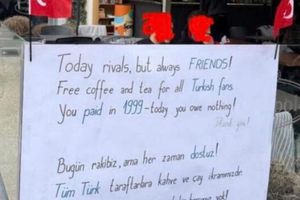 Today rivals, but always FRIENDS!
Free coffee and tea for all Turkish fans.
You paid in 1999 - today you owe nothing!
Thank you!
Bugün rakibiz, ama her zaman dostuz!
Tüm Türk taraftarlara kahve ve çay ikramımızdır.